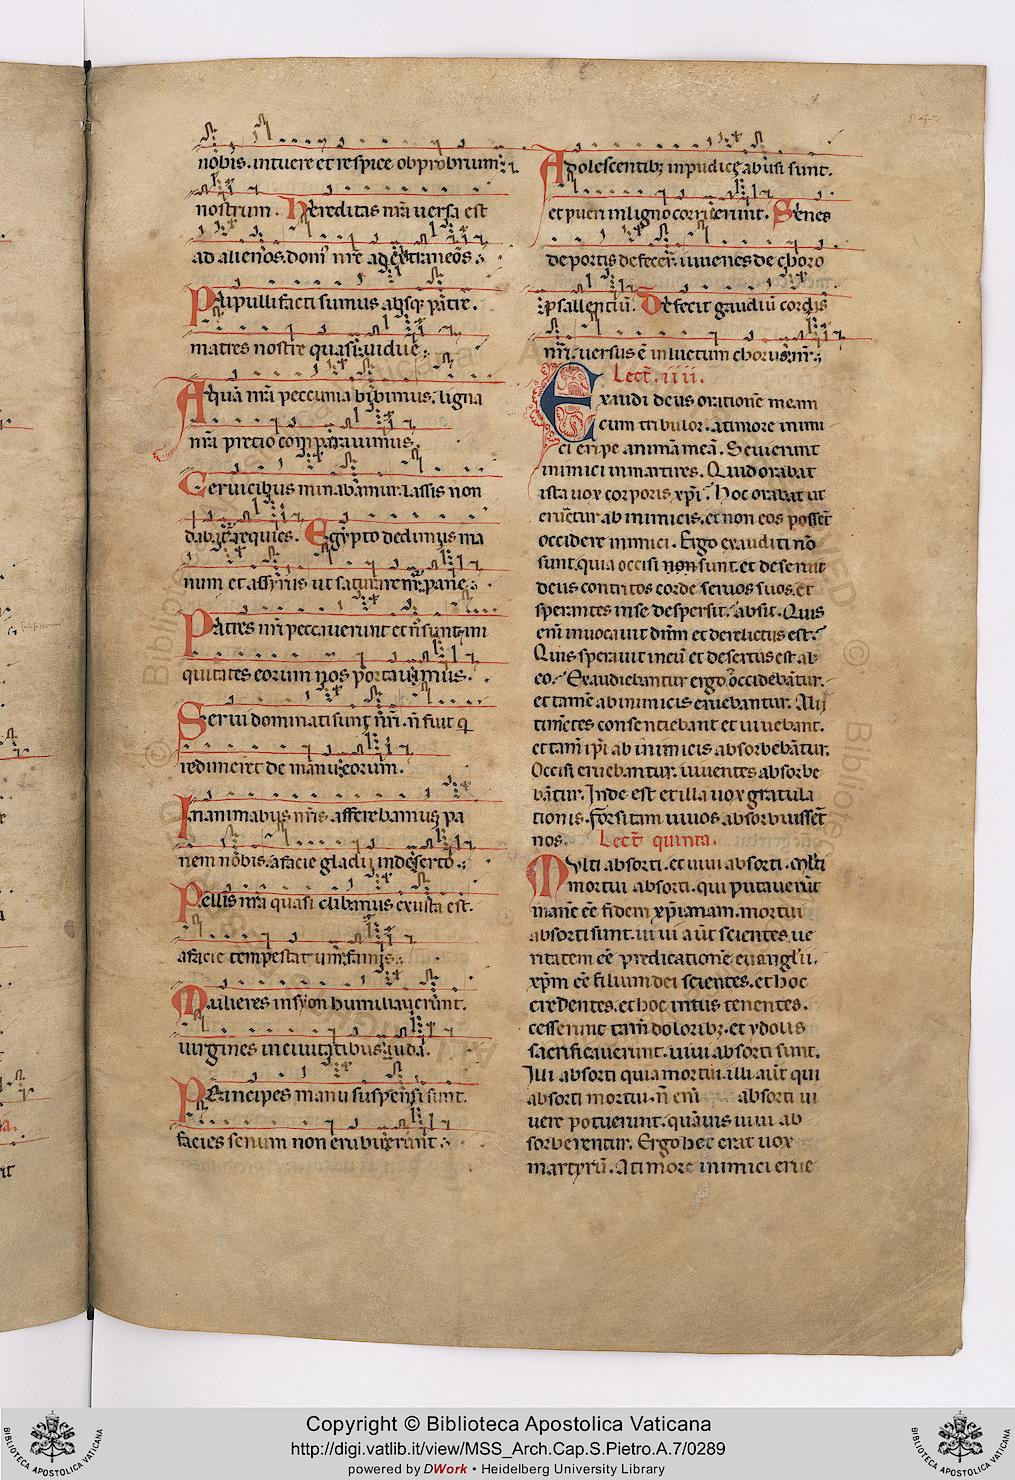 nobis. intuere et respice obprobrium
nostrum. Hereditas nr̃a uersa est
ad alienos. dom' nr̃e ad extraneos.
Pupilli facti sumus absq; patre.
matres nostre quasi uidue.
Aquã nr̃ã peccunia bibimus. ligna
nr̃a precio comparauimus.
Ceruicibus minabamur. lassis non
dabat̃ requies. Egypto dedimus ma
num et assyriis ut saturaremur pane.
Patres nr̃i peccauerunt et ñ sunt. ini
quitates eorum nos portauimus.
Serui dominati sunt nr̃i. ñ fuit q̃
redimeret de manu eorum.
In animabus nr̃is afferebamus pa
nem nobis. a facie gladii in deserto.
Pellis nr̃a quasi clibanus exusta est.
a facie tempestatum famis.
Mulieres in syon humiliauerunt.
uirgines in ciuitatibus iuda.
Principes manu suspensi sunt.
facies senum non erubuerunt.
Adolescentib; inpudice abusi sunt.
et pueri in ligno corruerunt. Senes
de portis defecer̃. iuuenes de choro
psallentiũ. Defecit gaudiũ cordis
nr̃i. uersus ẽ in luctum chorus nr̃.
Lect̃. iiii.
Exaudi deus orationẽ meam
cum tribulor. a timore inimi
ci eripe animã meã. Seuierunt
inimici in martires. Quid orabat
ista uox corporis xp̃i. Hoc orabat ut
eruẽtur ab inimicis. et non eos posset
occidere inimici. Ergo exauditi nõ
sunt. quia occisi non sunt. et deseruit
deus contritos corde seruos suos. et
sperantes in se despexit. absit. Quis
eni᷒ inuocauit dñm et derelictus est.
Quis sperauit in eũ et desertus est ab
eo. Exaudiebantur ergo occidebãtur.
et tamẽ ab inimicis eruebantur. Alij
timẽtes consentiebant et uiuebant.
et tam̃ ip̃i ab inimicis absorbebãtur.
Occisi eruebantur. uiuentes absorbe
bãtur. Inde est et illa uox gratula
tionis. Forsitam uiuos absorbuisset
nos. Lect̃ quinta.
Multi absorti. et uiui absorti. Ml̃ti
mortui absorti. qui putauerũt
inanẽ eẽ fidem xp̃ianam. mortui
absorti sunt. uiui aũt scientes ue
ritatem eẽ predicationẽ euangl̃ii.
xp̃m eẽ filium dei scientes. et hoc
credentes. et hoc intus tenentes.
cesserunt tam̃ dolorib;. et ydolis
sacrificauerunt. uiui absorti sunt.
Illi absorti quia mortui. illi aũt qui
absorti mortui. ñ enĩ absorti ui
uere potuerunt. quãuis uiui ab
sorberentur. Ergo hec erat uox
martyrũ. A timore inimici erue
Copyright © Biblioteca Apostolica Vaticana
http://digi.vatlib.it/view/MSS_Arch.Cap.S.Pietro.A.7/0289
powered by DWork • Heidelberg University Library